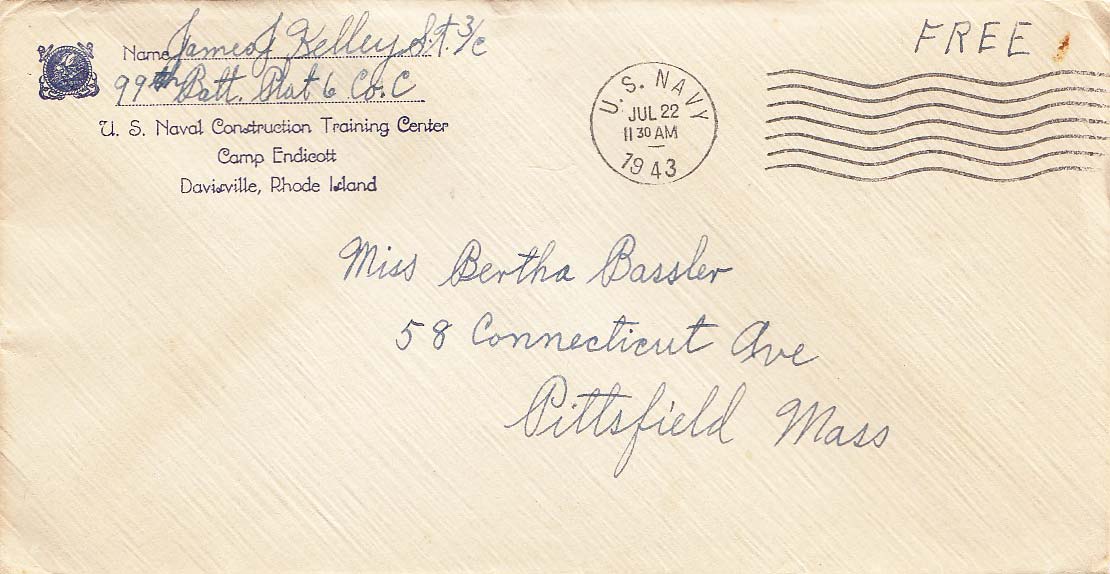 Name James J Kelley S.F. 3/c
99th Batt. Plat 6 Co. C
U. S. Naval Construction Training Center
Camp Endicott
Davisville, Rhode Island
U. S. NAVY
JUL 22
11 30 AM
1943
FREE
Miss Bertha Bassler
58 Connecticut Ave
Pittsfield Mass